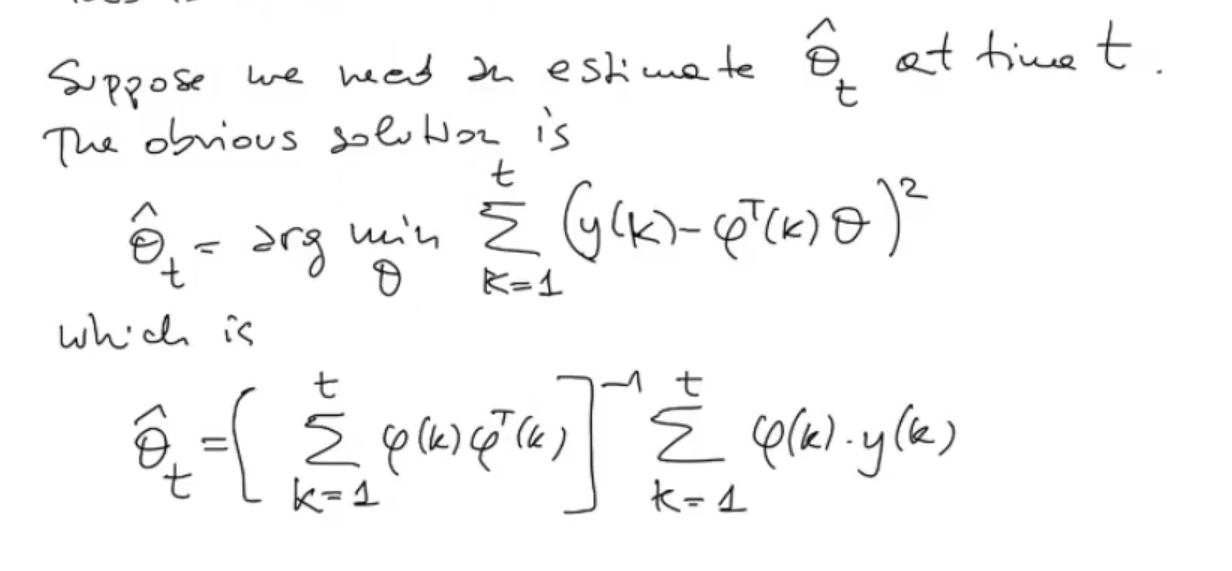 Suppose we need an estimate θ̂_t at time t.
The obvious solution is
θ̂_t = arg min_θ ∑_{k=1}^{t} (y(k) - φ^T(k) θ)^2
which is
θ̂_t = [ ∑_{k=1}^{t} φ(k) φ^T(k) ]^{-1} ∑_{k=1}^{t} φ(k) · y(k)